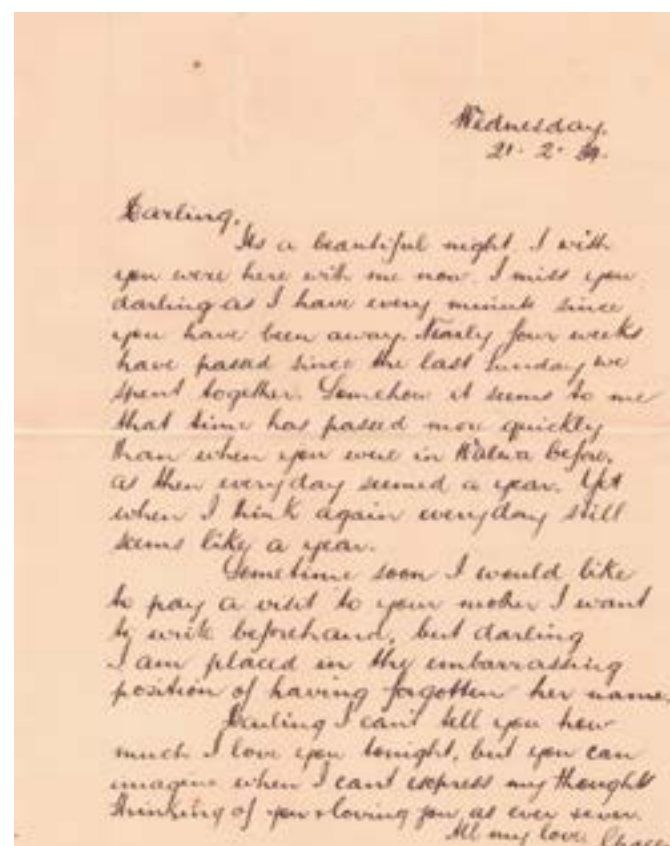 Wednesday.
21. 2. 39.
Darling.
Its a beautiful night I wish
you were here with me now. I miss you
darling as I have every minute since
you have been away. Nearly four weeks
have passed since the last Sunday we
spent together. Somehow it seems to me
that time has passed more quickly
than when you were in Walwa before,
as then everyday seemed a year. Yet
when I think again everyday still
seems like a year.
Sometime soon I would like
to pay a visit to your mother I want
to write beforehand, but darling
I am placed in the embarrassing
position of having forgotten her name.
Darling I can't tell you how
much I love you tonight, but you can
imagine when I cant express my thoughts
thinking of you & loving you as ever &ever.
All my love